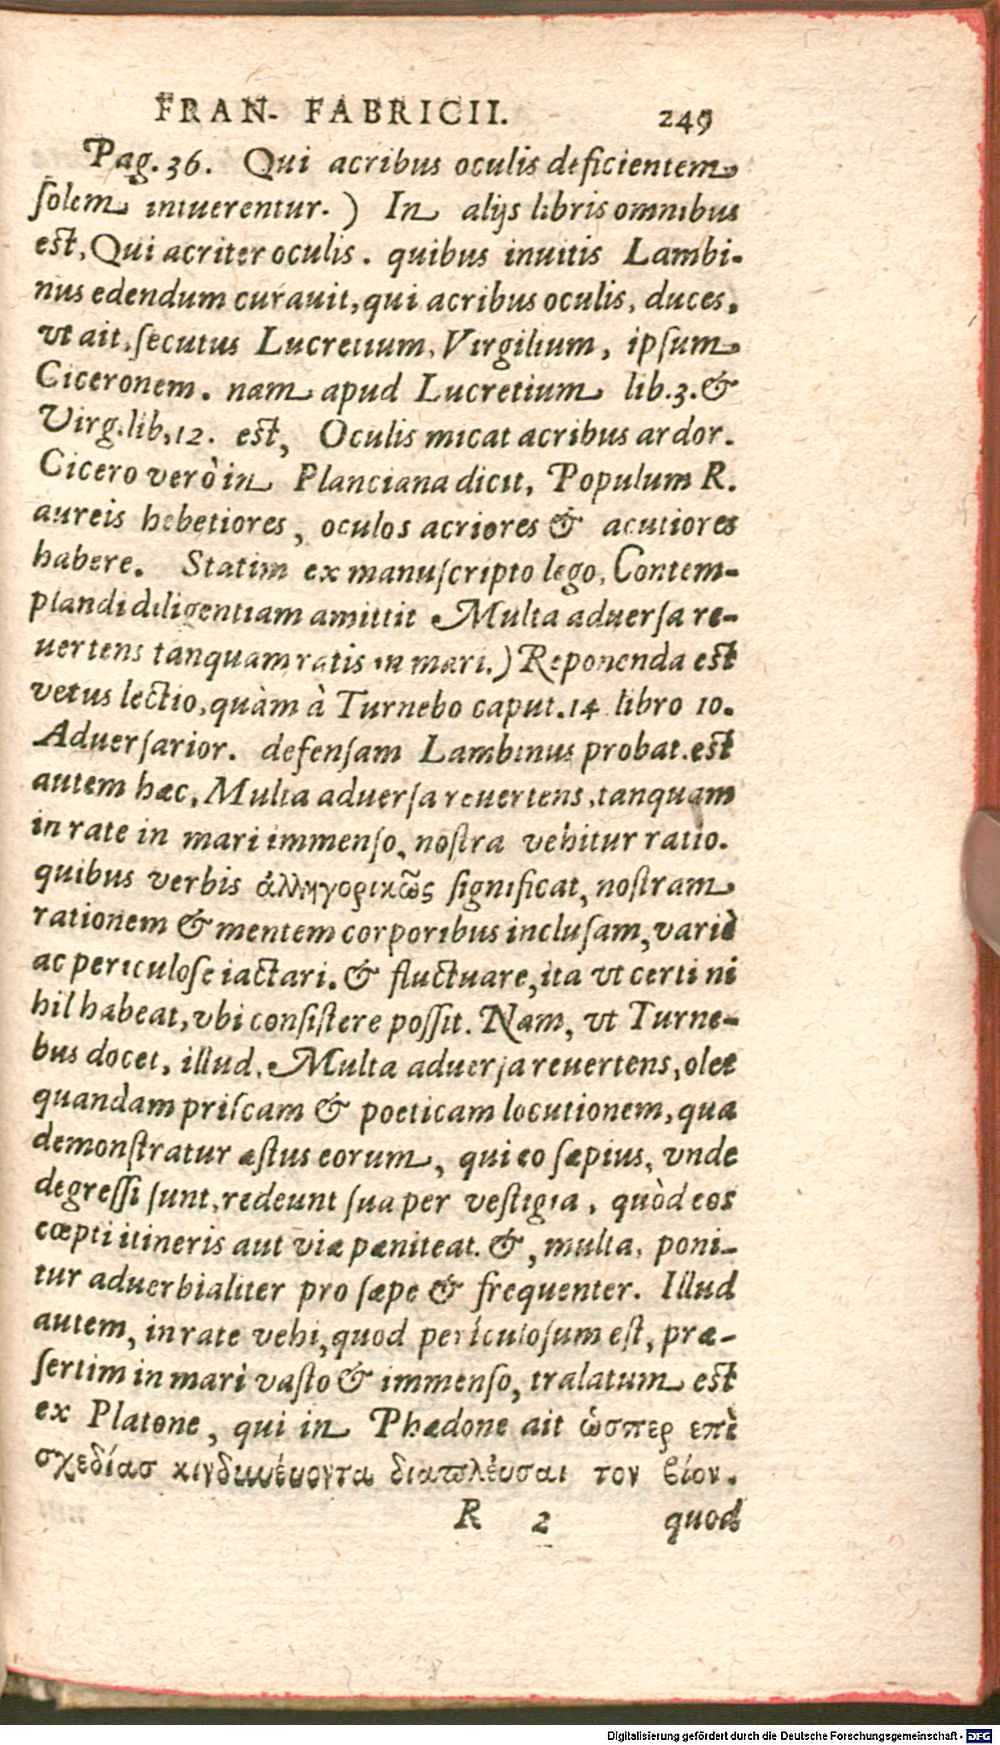 FRAN. FABRICII. 249
Pag. 36. Qui acribus oculis deficientem
ſolem intuerentur. ) In alijs libris omnibus
est, Qui acriter oculis. quibus inuitis Lambi-
nus edendum curauit, qui acribus oculis, duces,
vt ait, ſecutus Lucretium, Virgilium, ipſum
Ciceronem. nam apud Lucretium lib. 3. &
Virg. lib, 12. est, Oculis micat acribus ardor.
Cicero verò in Planciana dicit, Populum R.
aureis hebetiores, oculos acriores & acutiores
habere. Statim ex manuſcripto lego, Contem-
plandi diligentiam amittit Multa aduerſa re-
uertens tanquam ratis in mari.) Reponenda est
vetus lectio, quàm à Turnebo caput. 14 libro 10.
Aduerſarior. defenſam Lambinus probat. est
autem hæc, Multa aduerſa reuertens, tanquam
in rate in mari immenſo, noſtra vehitur ratio.
quibus verbis ἀλληγορικῶς ſignificat, noſtram
rationem & mentem corporibus incluſam, variè
ac periculoſe iactari. & fluctuare, ita vt certi ni
hil habeat, vbi conſiſtere poſſit. Nam, vt Turne-
bus docet, illud. Multa aduerſa reuertens, olet
quandam priſcam & poeticam locutionem, qua
demonſtratur æſtus eorum, qui eo ſæpius, vnde
degreſſi ſunt, redeunt ſua per veſtigia, quòd eos
cœpti itineris aut viæ pæniteat. &, multa, poni-
tur aduerbialiter pro ſæpe & frequenter. Illud
autem, in rate vehi, quod periculoſum eſt, præ-
ſertim in mari vaſto & immenſo, tralatum est
ex Platone, qui in Phædone ait ὥσπερ ἐπὶ
σχεδίασ κινδυνέυοντα διαπλέυσαι τον βίον.
R 2 quod
Digitalisierung gefördert durch die Deutsche Forschungsgemeinschaft - DFG